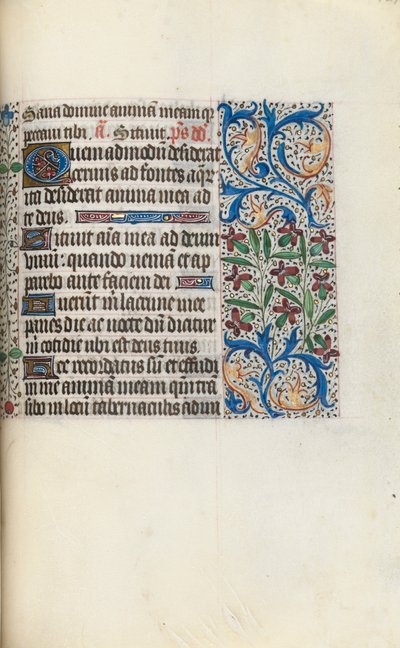 Sana domine animā meam qr
peccaui tibi. A. Sitiuit. ps dd.
Quemadmodū desiderat
ceruus ad fontes aqr
ita desiderat anima mea ad
te deus.
Sitiuit aīa mea ad deum
viuū: quando veniā et ap
parebo ante faciem dei
Fuerūt m lacrime mee
panes die ac nocte dū dicitur
m cotidie ubi est deus tuus.
Hec recordatus sū et effudi
in me animam meam qm trā
sibo in locū tabernaculi